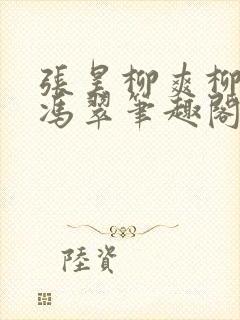 張昊柳爽柳
馮翠筆趣閣
陸資